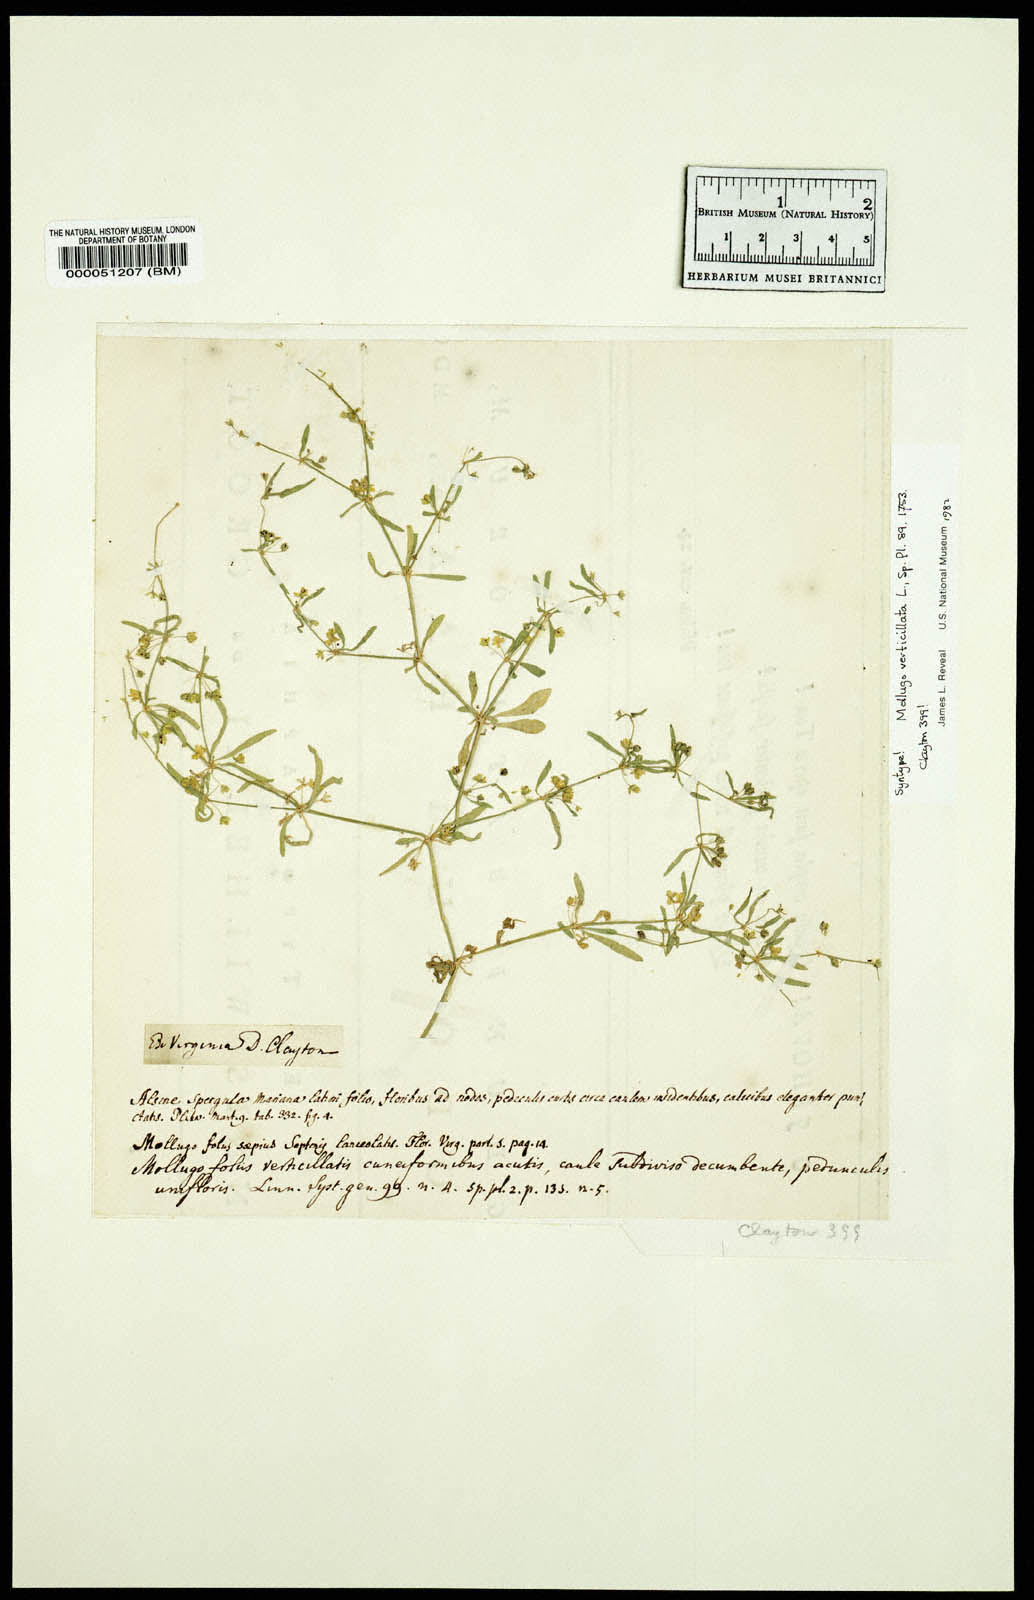 THE NATURAL HISTORY MUSEUM, LONDON
DEPARTMENT OF BOTANY
000051207 (BM)
1 2
BRITISH MUSEUM (NATURAL HISTORY)
1 2 3 4 5
HERBARIUM MUSEI BRITANNICI
Syntype! Mollugo verticillata L., Sp. Pl. 89. 1753.
Clayton 399!
James L. Reveal U.S. National Museum 1982
Ex Virginia D. Clayton
Alsine Spergula Mariana latiori folio, floribus ad nodos, pediculis curtis circa caulem insidentibus, calicibus eleganter punc-
ctatis. Pluk. Mant. 9. tab. 332. fig. 4.
Mollugo foliis sæpius Septenis lanceolatis. Flor. Virg. part. 5. pag. 14.
Mollugo foliis verticillatis cuneiformibus acutis, caule Subdiviso decumbente, pedunculis
unifloris. Linn. Syst. gen. 99. n. 4. Sp. pl. 2. p. 133. n. 5.
Clayton 399